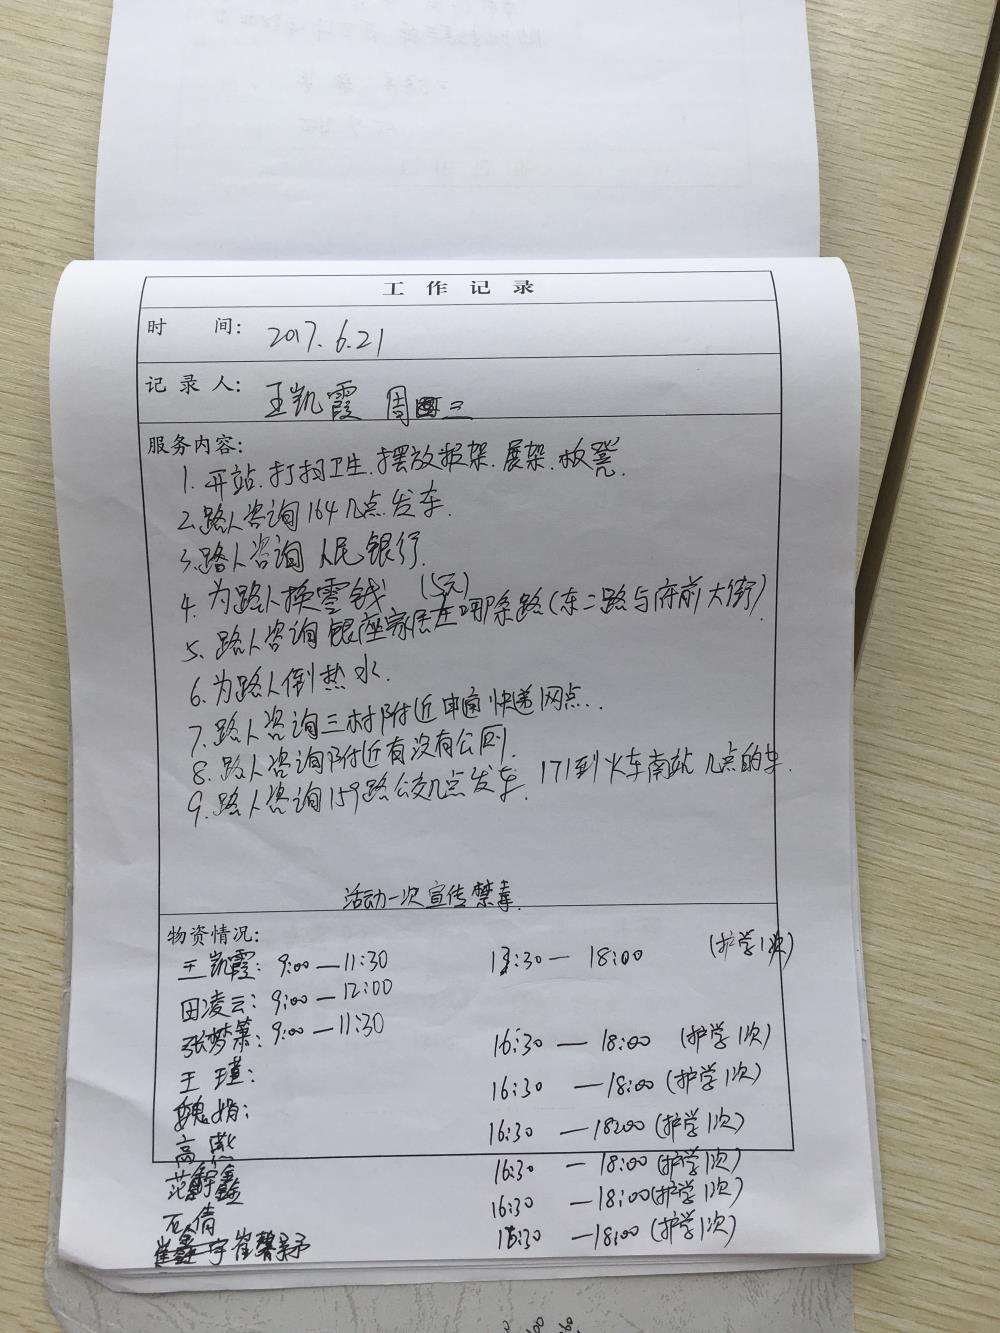 工作记录
时 间: 2017.6.21
记录人: 王凯霞 周三
服务内容:
1. 开站.打扫卫生.摆放报架.展架.板凳.
2. 路人咨询164几点发车.
3. 路人咨询人民银行.
4. 为路人换零钱 (5元)
5. 路人咨询银座家居在哪条路(东二路与府前大街)
6. 为路人倒热水.
7. 路人咨询三村附近申通快递网点..
8. 路人咨询附近有没有公厕.
9. 路人咨询159路公交几点发车. 171到火车南站几点的车.
活动一次宣传禁毒.
物资情况:
王凯霞: 9:00—11:30 13:30— 18:00 (护学1次)
田凌云: 9:00—12:00
张梦箫: 9:00—11:30 16:30 — 18:00 (护学1次)
王瑾: 16:30 —18:00 (护学1次)
魏娟: 16:30 —18:00 (护学1次)
高 16:30 — 18:00 (护学1次)
范 鑫 16:30 —18:00 (护学1次)
石倩 16:30 —18:00 (护学1次)
崔馨予